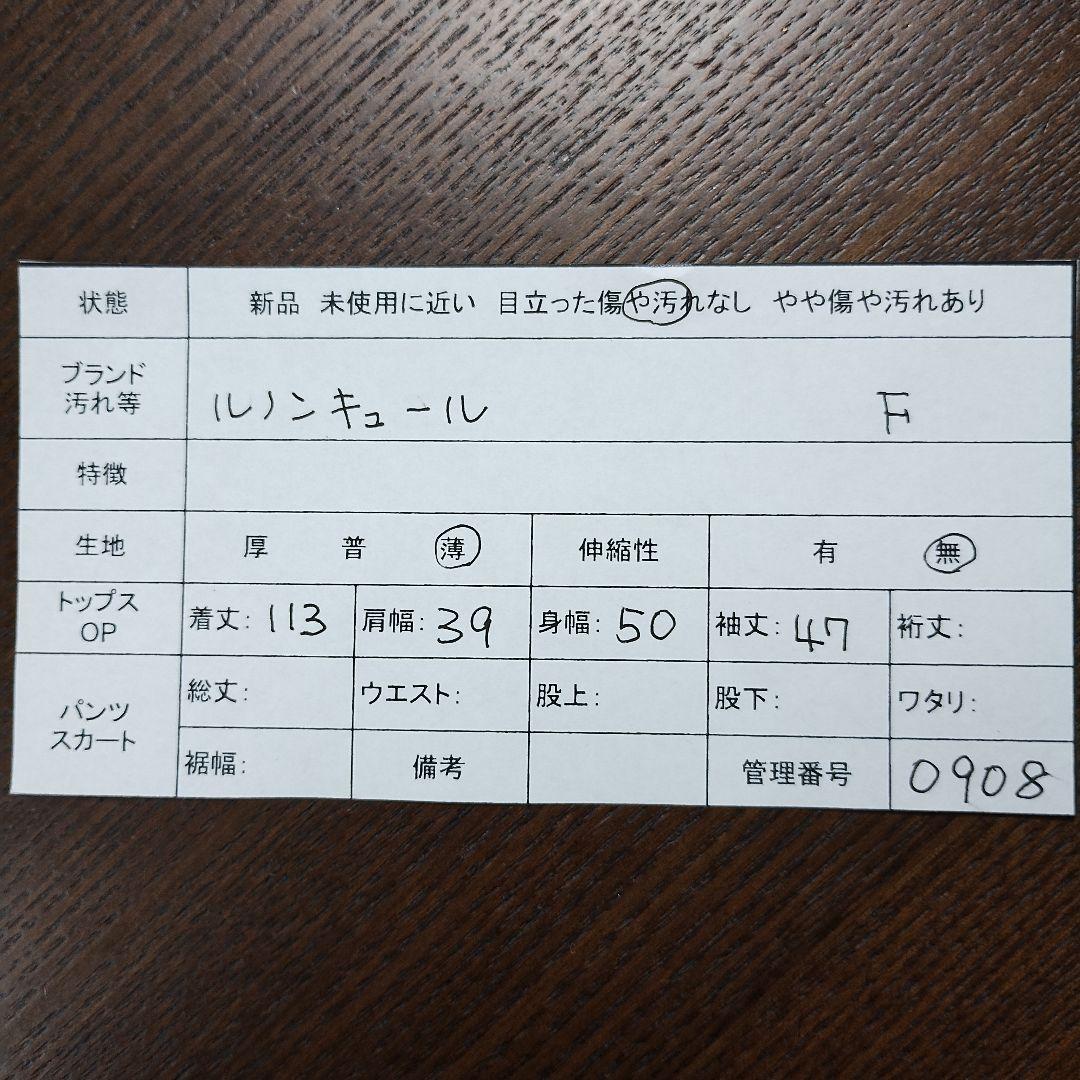 状態 新品 未使用に近い 目立った傷や汚れなし やや傷や汚れあり
ブランド
汚れ等
ルノンキュール F
特徴
生地 厚 普 薄 伸縮性 有 無
トップス
OP
着丈: 113 肩幅: 39 身幅: 50 袖丈: 47 裄丈:
パンツ
スカート
総丈: ウエスト: 股上: 股下: ワタリ:
裾幅: 備考 管理番号 0908